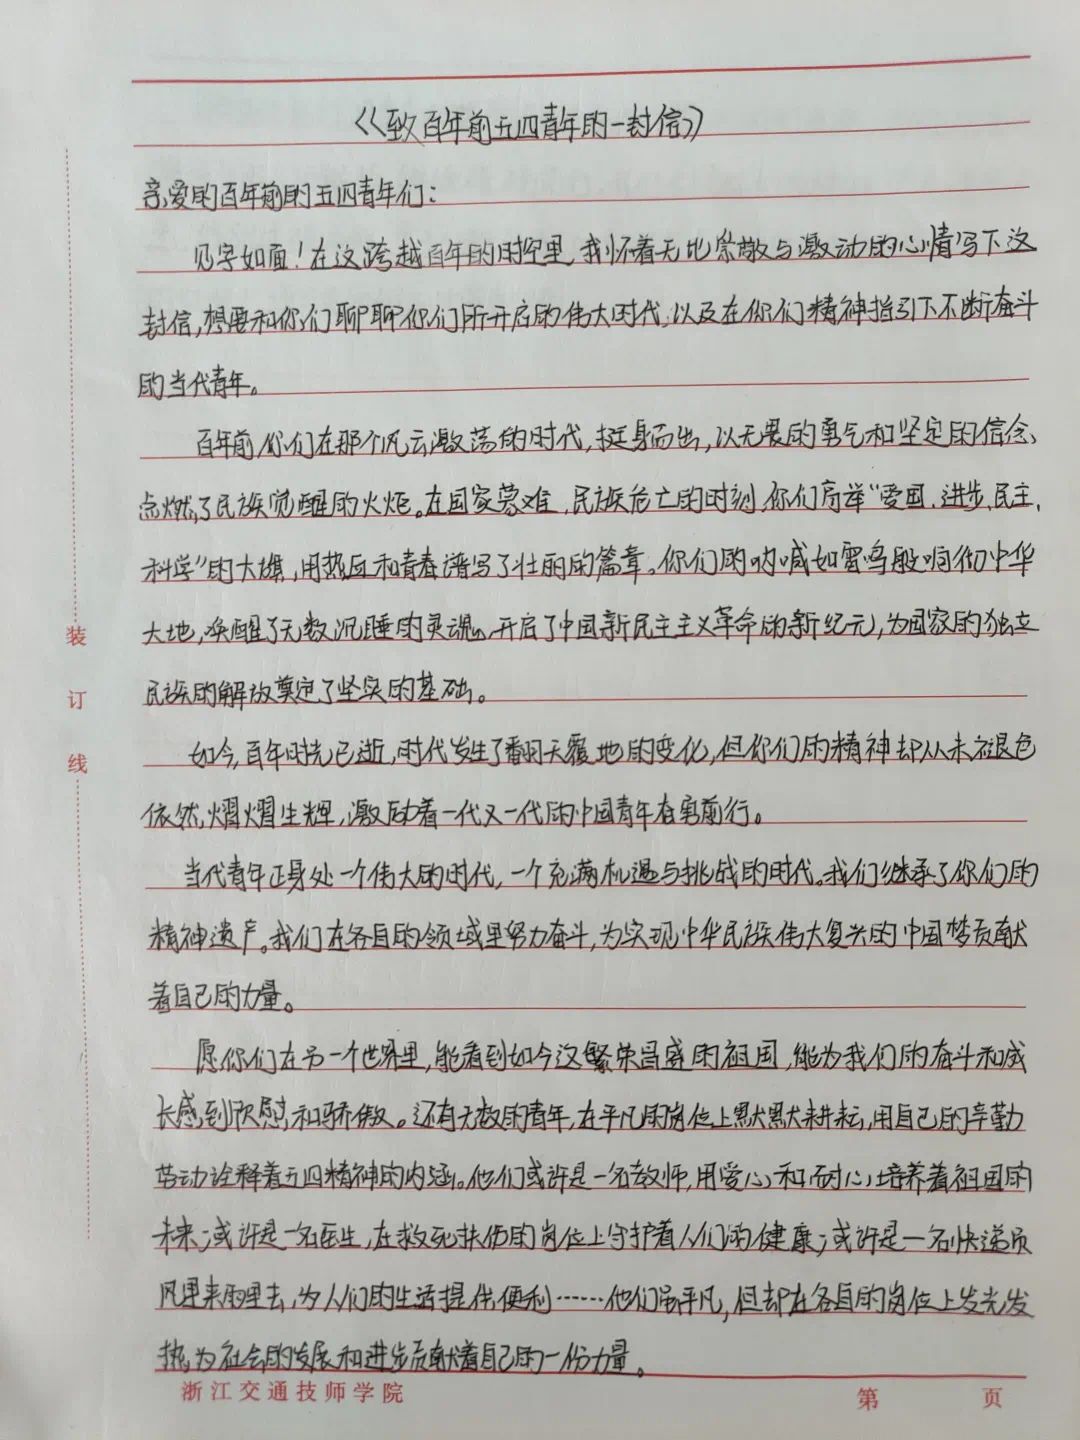 《致百年前五四青年的一封信》
亲爱的百年前的五四青年们：
见字如面！在这跨越百年的时空里，我怀着无比崇敬与激动的心情写下这
封信，想要和你们聊聊你们所开启的伟大时代，以及在你们精神指引下不断奋斗
的当代青年。
百年前，你们在那个风云激荡的时代，挺身而出，以无畏的勇气和坚定的信念，
点燃了民族觉醒的火炬。在国家蒙难，民族危亡的时刻，你们高举“爱国、进步、民主、
科学”的大旗，用热血和青春谱写了壮丽的篇章。你们的呐喊如雷鸣般响彻中华
大地，唤醒了无数沉睡的灵魂，开启了中国新民主主义革命的新纪元，为国家的独立
民族的解放奠定了坚实的基础。
如今，百年时光已逝，时代发生了翻天覆地的变化，但你们的精神却从未褪色
依然熠熠生辉，激励着一代又一代的中国青年奋勇前行。
当代青年正身处一个伟大的时代，一个充满机遇与挑战的时代。我们继承了你们的
精神遗产。我们在各自的领域里努力奋斗，为实现中华民族伟大复兴的中国梦贡献
着自己的力量。
愿你们在另一个世界里，能看到如今这繁荣昌盛的祖国，能为我们的奋斗和成
长感到欣慰和骄傲。还有无数的青年，在平凡的岗位上默默耕耘，用自己的辛勤
劳动诠释着五四精神的内涵。他们或许是一名教师，用爱心和耐心培养着祖国的
未来；或许是一名医生，在救死扶伤的岗位上守护着人们的健康；或许是一名快递员
风里来雨里去，为人们的生活提供便利……他们虽平凡，但却在各自的岗位上发光发
热，为社会的发展和进步贡献着自己的一份力量。
装
订
线
浙江交通技师学院
第 页